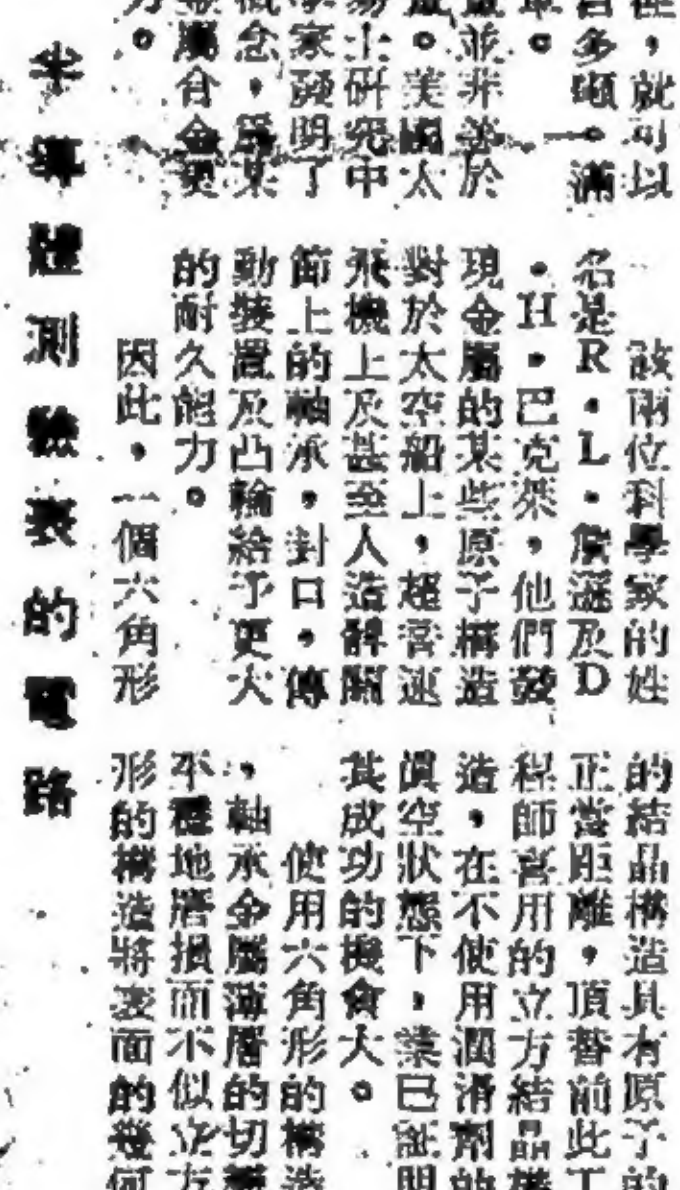 ，就可以
多噸。滿
。
並非善於
。美國太
士研究中
家發明了
念，為某
屬合金更
。
該兩位科學家的姓
名是R．L．詹遜及D
．H．巴克萊，他們發
現金屬的某些原子構造
對於太空船上，超音速
飛機上及甚至人造髀關
節上的軸承，封口，傳
動裝置及凸輪給予更大
的耐久能力。
因此，一個六角形
的結晶構造具有原子的
正當距離，頂替前此工
程師喜用的立方結晶構
造，在不使用潤滑劑的
真空狀態下，業已証明
其成功的機會大。
使用六角形的構造
，軸承金屬薄層的切
平穩地磨損而不似立方
形的構造將表面的幾何
半導體測驗表的電路